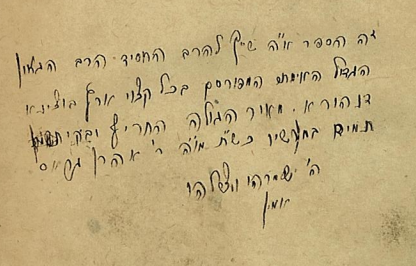 זה הספר א"ה שייך להרב החסיד הרב הגאון
הגדול האמיתי המפורסם בכל קצוי ארץ בוצינא
דנהורא מאור הגולה החריף ובקי
תמים במעשיו כש"ת מו"ה ר' אהרן
ה' ישמרהו ויצילהו
אמן